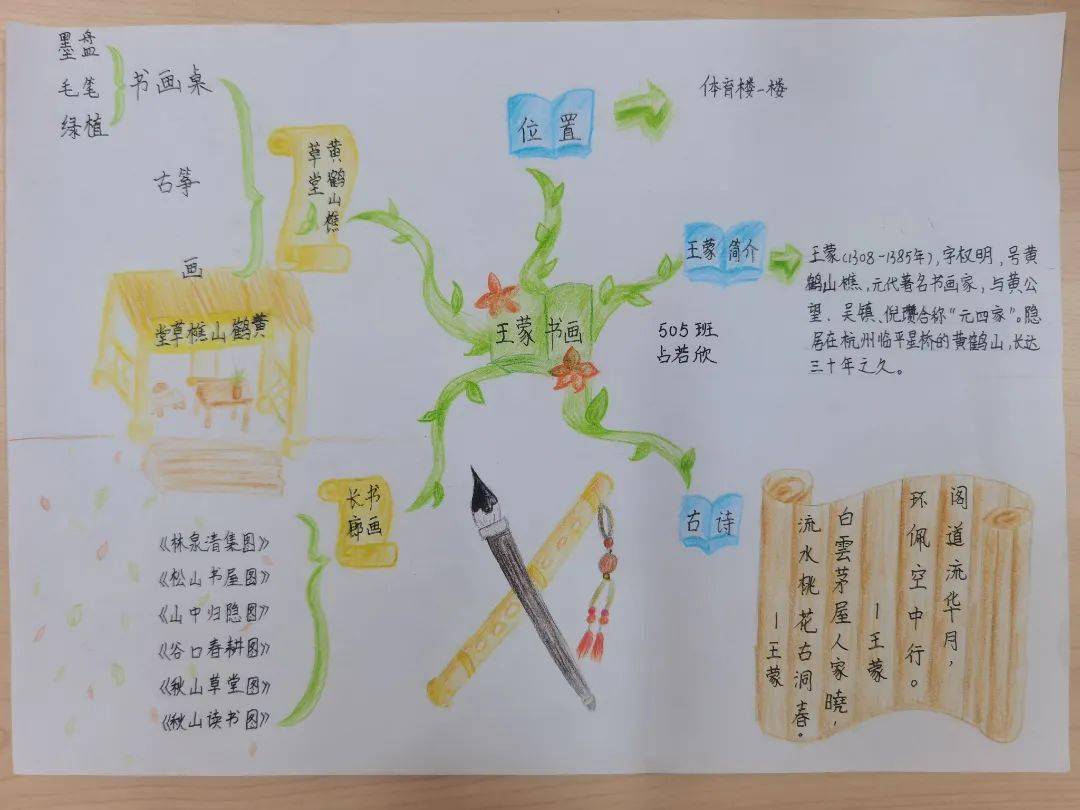 王蒙 书画
505班
占若欣
位置
体育楼一楼
王蒙 简介
王蒙(1308-1385年),字权明,号黄
鹤山樵,元代著名书画家,与黄公
望、吴镇、倪瓒合称“元四家”。隐
居在杭州临平星桥的黄鹤山,长达
三十年之久。
古诗
阁道流华月,
环佩空中行。
—王蒙
白雲茅屋人家曉,
流水桃花古洞春。
—王蒙
黄鹤山樵
草堂
书画桌
墨盘
毛笔
绿植
古筝
画
黄鹤山樵草堂
书画
长廊
《林泉清集图》
《松山书屋图》
《山中归隐图》
《谷口春耕图》
《秋山草堂图》
《秋山读书图》